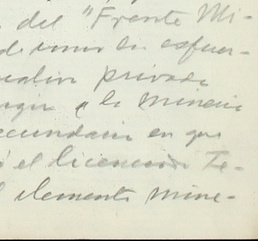 del "Frente Mi-
de unir los esfuer-
privada
la minería
secundaria en que
el licenciado Te-
elemento mine-